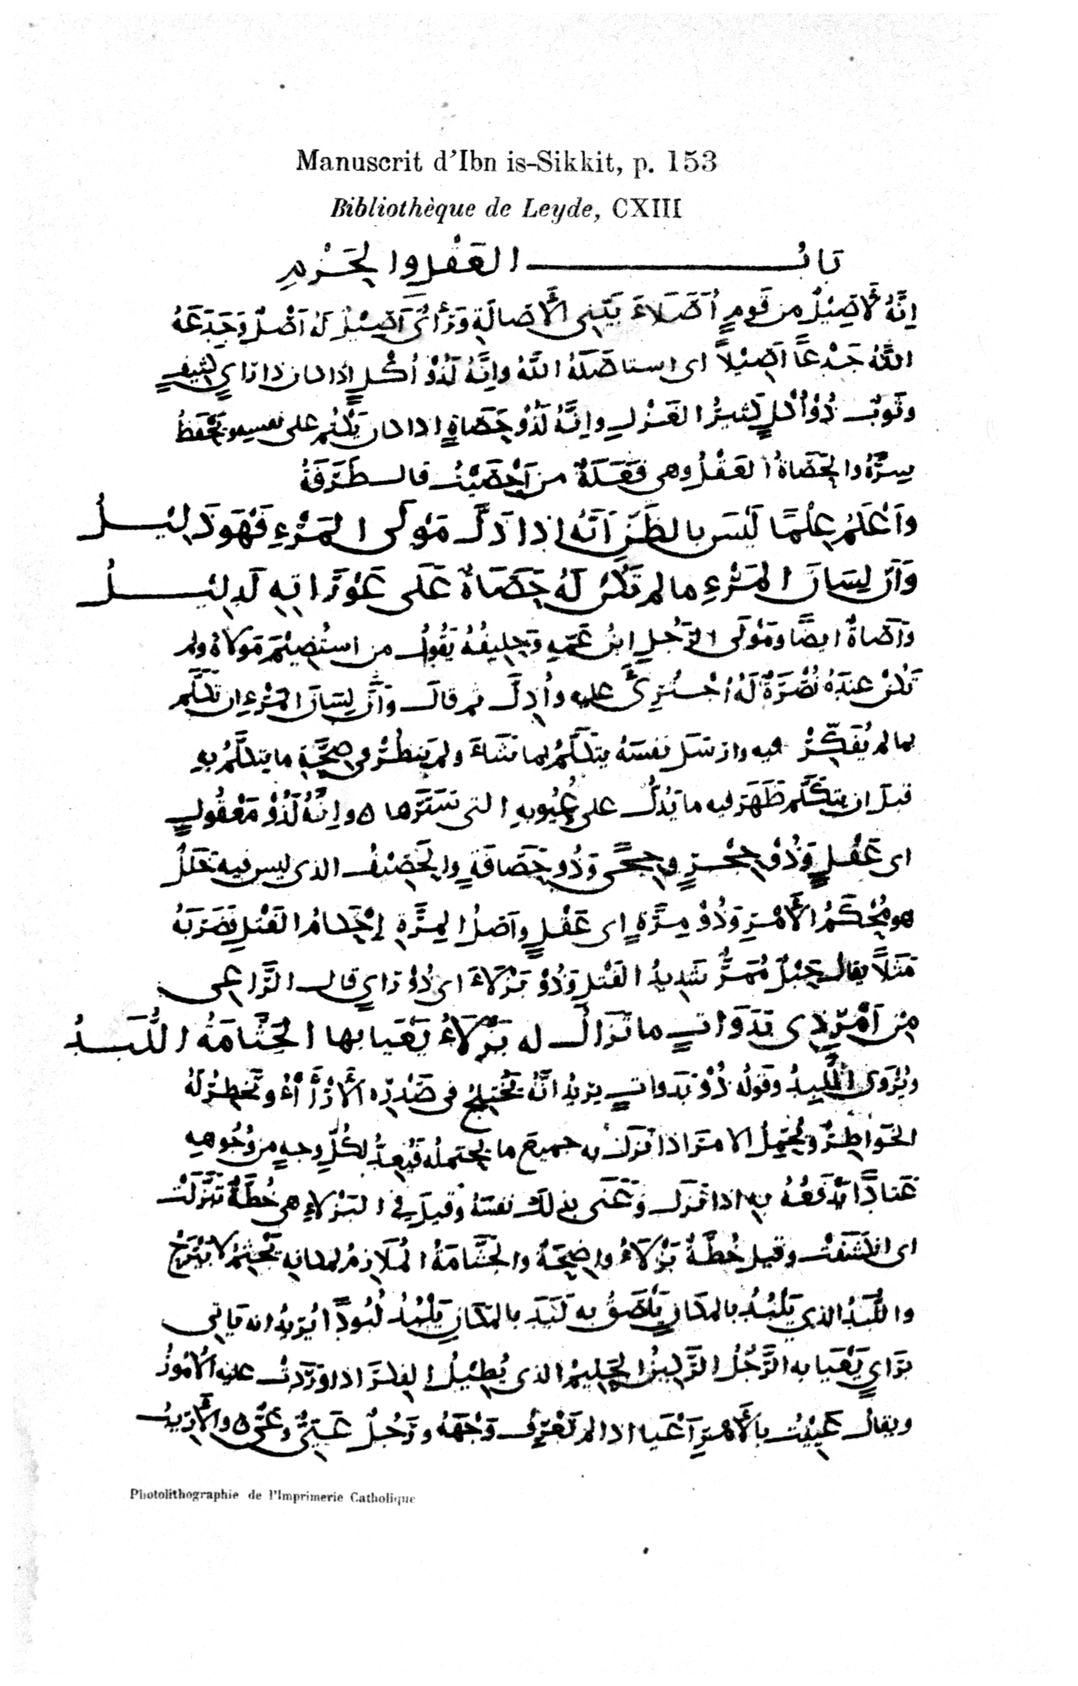 Manuscrit d'Ibn is-Sikkit, p. 153
Bibliothèque de Leyde, CXIII
بَابُ العَقْلِ والحَزْمِ
اِنَّهُ لَأَصِيْلٌ من قَومٍ أُصَلَاءَ بَيِّنى الأَصَالَةِ وَرَأىٌ اَصِيْلٌ لَهُ اَصْلٌ وَجَدَعَهُ
اللّٰهُ جَدْعًا اَصِيْلاً اى استاصَلَهُ اللّٰهُ وانَّهُ لَذُوْ أُكْلٍ اذا كان ذا رَاىٍ
وثَوبٌ ذُوْ أُكْلٍ كثيرُ الغَزْلِ وانَّهُ لَذُوْ حَصَاةٍ اذا كان يَكْتُم على نفسهِ ويَحْفَظُ
سِرَّهُ والحَصَاةُ العَقْلُ وهى فَعَلَةٌ من اَحْصَيْتُ قال طَرَفَةُ
وَاَعْلَمُ عِلْمًا لَيْسَ بالظَنِّ اَنَّهُ اِذا ذَلَّ مَوْلَى المَرْءِ فَهْوَ ذَلِيْلُ
وَاَنَّ لِسَانَ المَرْءِ ما لم تَكُنْ لَهُ حَصَاةٌ عَلَى عَوْرَاتِهِ لَدَلِيْلُ
وَاَصَاةٌ ايضًا ومَوْلَى الرَجُلِ ابنُ عَمِّهِ وَحَلِيفُهُ يَقُولُ من استُضِيْمَ مَوْلَاهُ ولم
تكُنْ عِندَهُ نُصْرَةٌ لَهُ اجْتُرِئَ عليه وأُذِلَّ ثم قالَ وَاَنَّ لِسَانَ المَرْءِ ان تَكَلَّمَ
بما لم يُفَكِّرْ فيه وارسَلَ نَفسَهُ يتكَلَّمُ بما شَاءَ ولم يَنظُرْ فى صِحَّةِ ما يتكلَّمُ بهِ
قبلَ ان يتَكَلَّم ظَهَرَ فيه ما يَدُلُّ على عُيُوبهِ التى سَتَرَها ه وانَّهُ لَذُوْ مَعْقُولٍ
اى عَقْلٍ وَذُوْ حِجْرٍ وحِجًى وَذُو حَصَافَةٍ والحَصِيْفُ الذى ليس فيه خَلَلٌ
هو مُحْكَمُ الأَمْرِ وَذُوْ مِرَّةٍ اى عَقْلٍ واَصْلُ المِرَّةِ اِحْكامُ الفَتْلِ فضَرَبَهُ
مَثَلاً يقالُ حَبْلٌ مُمَرٌّ شَدِيدُ الفَتْلِ وَذُوْ بَزْلَاءَ اى ذُوْ رَاىٍ قال الرَّاعِى
مِنْ اَمْرِ ذِى بَدَوَاتٍ ما تَزَالُ له بَزْلَاءُ يَعْيَا بها الجَثَّامَةُ اللُّبَدُ
ويُرْوَى اللَّبِدُ وقَولُهُ ذُوْ بَدَواتٍ يريدُ انَّهُ تَخْتَلِجُ فى صَدْرِهِ الأَرْأآءُ وتَخطِرُ لَهُ
الخَواطِرُ ويُحتملُ الامرَ اذا نَزَلَ به جميعَ ما يحتملُه لكُلِّ وجهٍ من وُجُوهِهِ
عَتَادًا يَدْفَعُهُ به اذا نَزَلَ وَعَنَى بذلك نفسَهُ وقيلَ فى البَزْلَاءِ هى خُطَّةٌ تَبَزَّلَتْ
اى انكَشَفَتْ وقيل خُطَّةٌ بَزْلَاءُ واضِحَةٌ والجَثَّامَةُ المُلَازِمُ لمكانِهِ يَجْثِمُ لا يَبْرَحُ
واللُّبَدُ الذى يَلْبُدُ بالمكانِ يَلْصَقُ به لَبَدَ بالمكانِ يَلْبُدُ لُبُودًا يُرِيدُ انه ياتى
برَاىٍ يَعْيَا به الرَّجُلُ الرَّكِينُ الحَلِيمُ الذى يُطِيْلُ الفِكْرَ اذا وَرَدَتْ عليه الأُمُورُ
ويقال عَيِيْتُ بالأَمْرِ اَعْيَا اذا لم تَعْرِفْ وَجْهَهُ ورَجُلٌ عَيِىٌّ وعَىٌّ ه والأَرِيْبُ
Photolithographie de l'Imprimerie Catholique